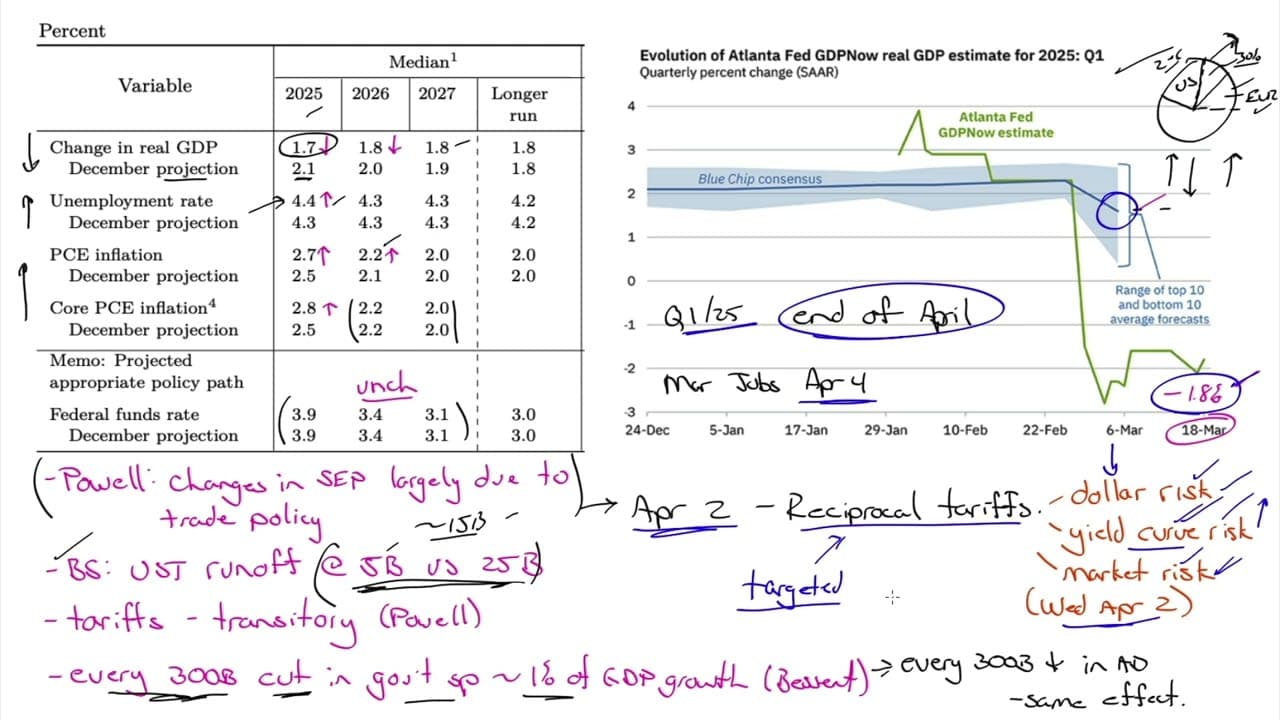 Percent
Variable
Median¹
2025 2026 2027 Longer run
Change in real GDP 1.7 ↓ 1.8 ↓ 1.8 – 1.8
December projection 2.1 2.0 1.9 1.8
Unemployment rate 4.4 ↑ 4.3 4.3 4.2
December projection 4.3 4.3 4.3 4.2
PCE inflation 2.7 ↑ 2.2 ↑ 2.0 2.0
December projection 2.5 2.1 2.0 2.0
Core PCE inflation⁴ 2.8 ↑ (2.2 2.0)
December projection 2.5 2.2 2.0
Memo: Projected
appropriate policy path
unch
Federal funds rate (3.9 3.4 3.1) 3.0
December projection 3.9 3.4 3.1 3.0
(-Powell: changes in SEP largely due to
trade policy)
~15B -
- BS: UST runoff (@ 5B vs 25B)
- tariffs - transitory (Powell)
- every 300B cut in gov't sp ~ 1% of GDP growth (Bessent)
→ every 300B ↓ in AD
- same effect.
Evolution of Atlanta Fed GDPNow real GDP estimate for 2025: Q1
Quarterly percent change (SAAR)
US
30%
EUR
↑ ↓ ↑
4
3
2
1
0
-1
-2
-3
Atlanta Fed
GDPNow estimate
Blue Chip consensus
Range of top 10
and bottom 10
average forecasts
Q1/25 end of April
Mar Jobs Apr 4
-1.8%
24-Dec 5-Jan 17-Jan 29-Jan 10-Feb 22-Feb 6-Mar 18-Mar
→ Apr 2 - Reciprocal tariffs.
targeted
- dollar risk
- yield curve risk ↑
- market risk
(Wed Apr 2)